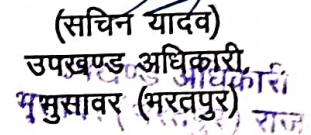 (सचिन यादव)
उपखण्ड अधिकारी,
भुसावर (भरतपुर)
अधिकारी
राज